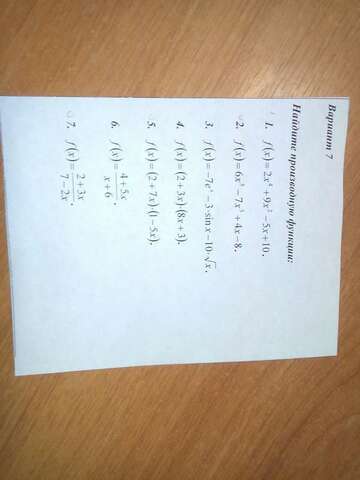 Вариант 7
Найдите производную функции:
1. f(x)=2x⁴+9x³−5x+10.
2. f(x)=6x⁵−7x³+4x−8.
3. f(x)=−7eˣ−3·sin x−10·√x.
4. f(x)=(2+3x)·(8x+3).
5. f(x)=(2+7x)·(1−5x).
6. f(x)=(4+5x)/(x+6).
7. f(x)=(2+3x)/(7−2x).